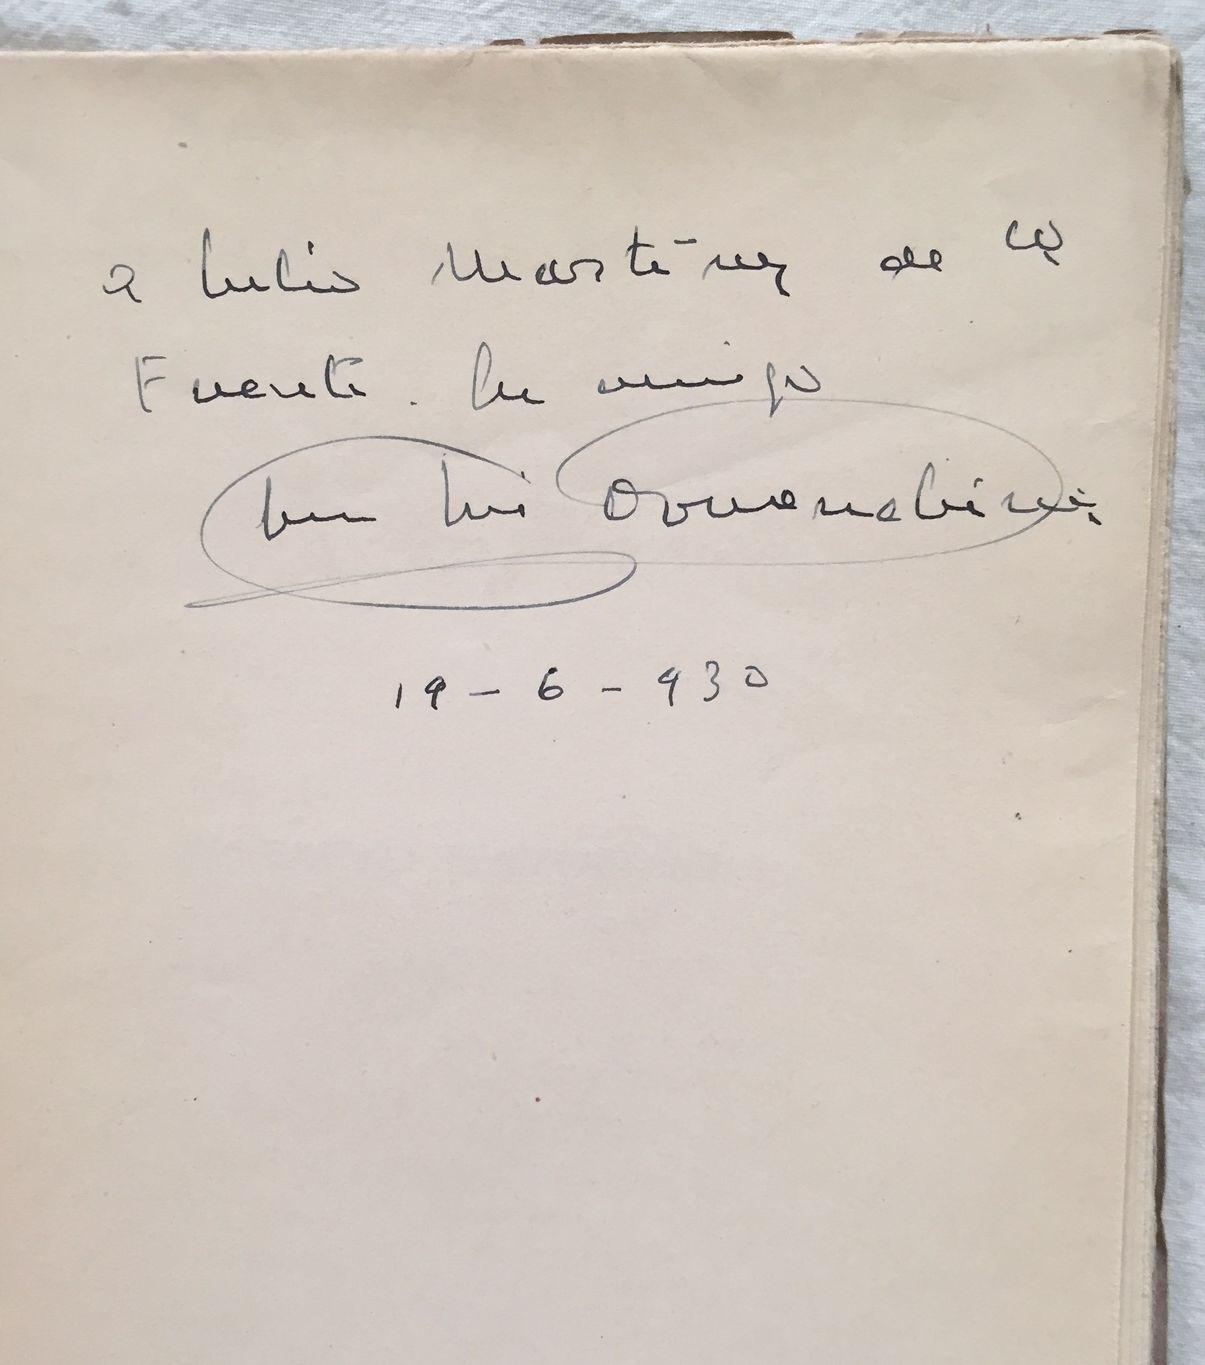 a Julio Martínez de la
Fuente. Su amigo
Juan Luis Oromendía
19-6-930